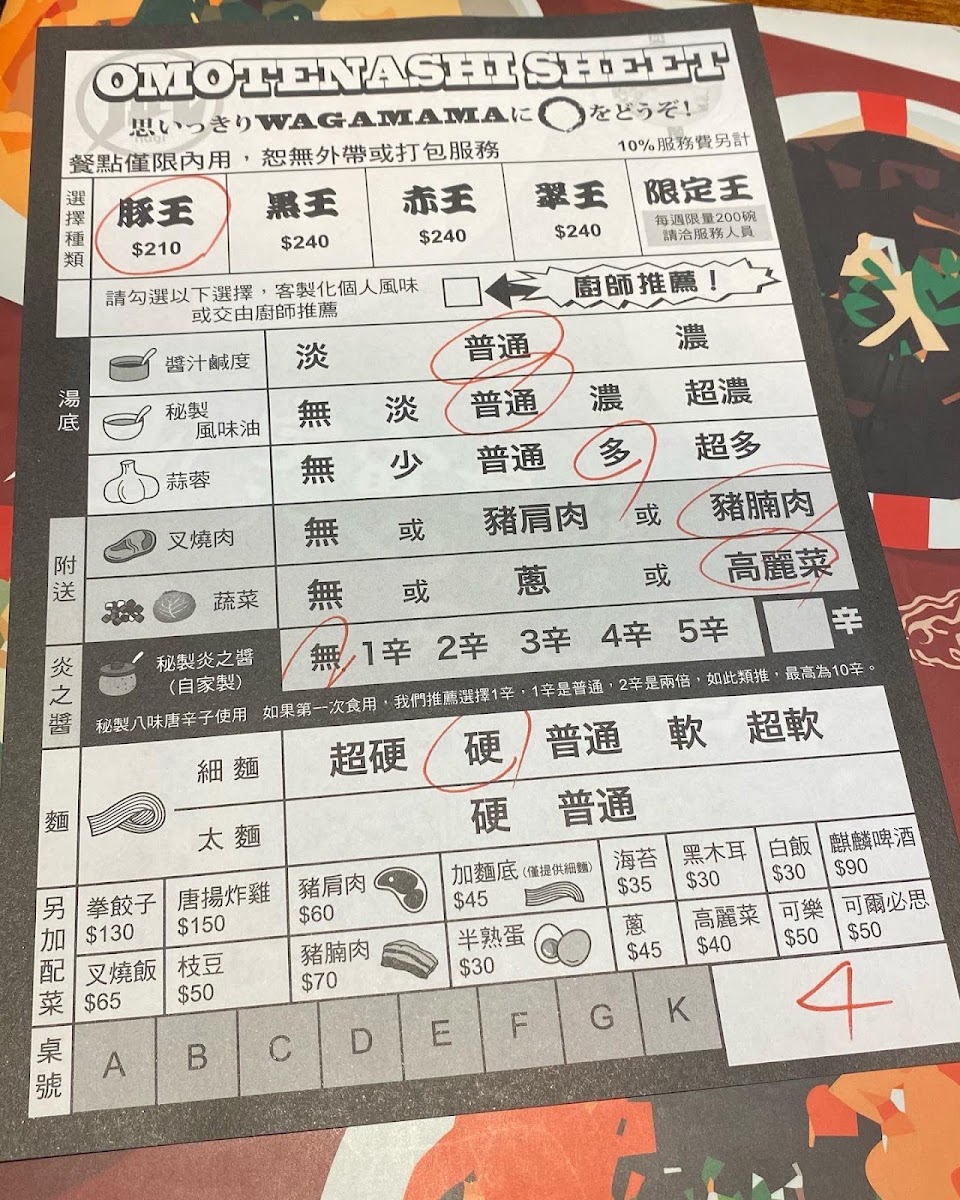 OMOTENASHI SHEET
思いっきりWAGAMAMAに◯をどうぞ!
餐點僅限內用，恕無外帶或打包服務 10%服務費另計
選擇種類 豚王 黑王 赤王 翠王 限定王
$210 $240 $240 $240 每週限量200碗
請洽服務人員
請勾選以下選擇，客製化個人風味 廚師推薦！
或交由廚師推薦
湯底
醬汁鹹度 淡 普通 濃
秘製風味油 無 淡 普通 濃 超濃
蒜蓉 無 少 普通 多 超多
附送
叉燒肉 無 或 豬肩肉 或 豬腩肉
蔬菜 無 或 蔥 或 高麗菜
炎之醬
秘製炎之醬 無 1辛 2辛 3辛 4辛 5辛 辛
(自家製)
秘製八味唐辛子使用 如果第一次食用，我們推薦選擇1辛，1辛是普通，2辛是兩倍，如此類推，最高為10辛。
麵
細麵 超硬 硬 普通 軟 超軟
太麵 硬 普通
另加配菜
拳餃子 唐揚炸雞 豬肩肉 加麵底(僅提供細麵) 海苔 黑木耳 白飯 麒麟啤酒
$130 $150 $60 $45 $35 $30 $30 $90
叉燒飯 枝豆 豬腩肉 半熟蛋 蔥 高麗菜 可樂 可爾必思
$65 $50 $70 $30 $45 $40 $50 $50
桌號 A B C D E F G K 4